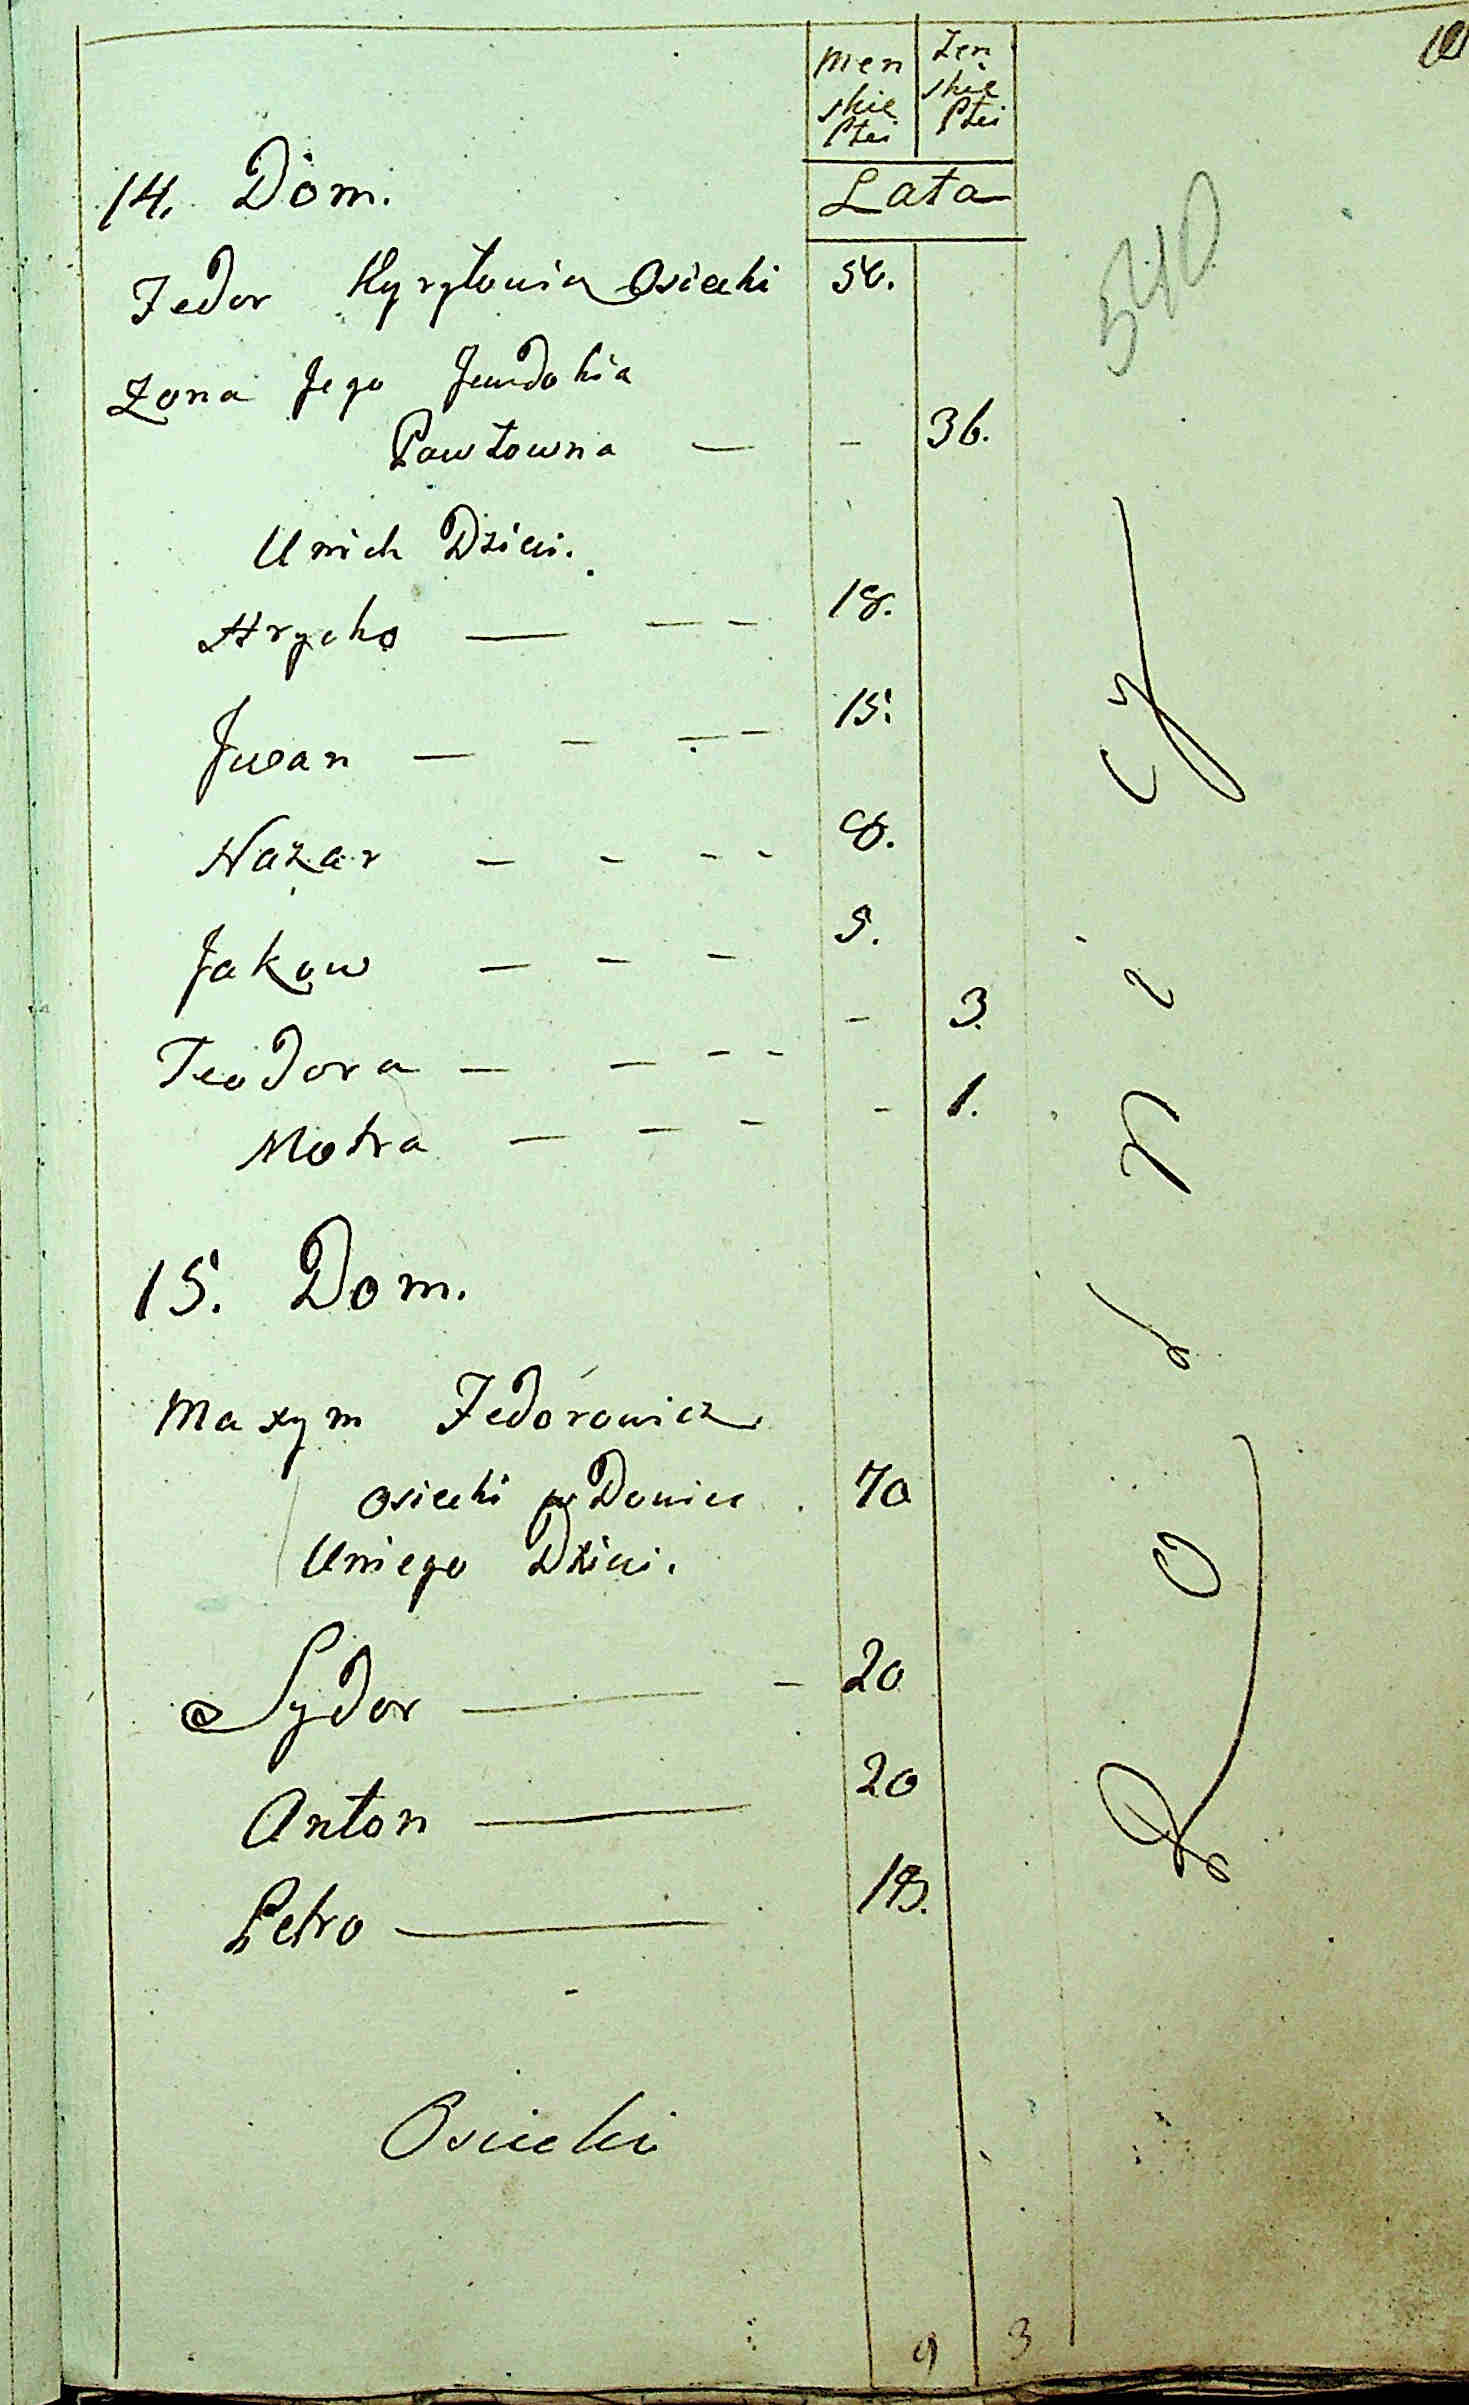 10
Men
skie
Płci
Żen
skie
Płci
Lata
540
14. Dom.
Fedor Kyryłowicz Osiecki 56.
Żona Jego Jewdokia
Pawłowna — - 36.
Unich Dzieci.
Hryćko — — - 18.
Jwan — - — - 15.
Nazar — - - - 8.
Jakow — - - 5.
Teodora — — - - - 3.
Motra — — - - 1.
15. Dom.
Maxym Fedorowicz
Osiecki wDowiec 70
Uniego Dzieci.
Sydor — - 20
Anton — 20
Petro — 18.
Osiecki
9 3